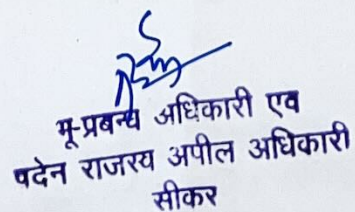 भू-प्रबन्ध अधिकारी एव
पदेन राजस्य अपील अधिकारी
सीकर